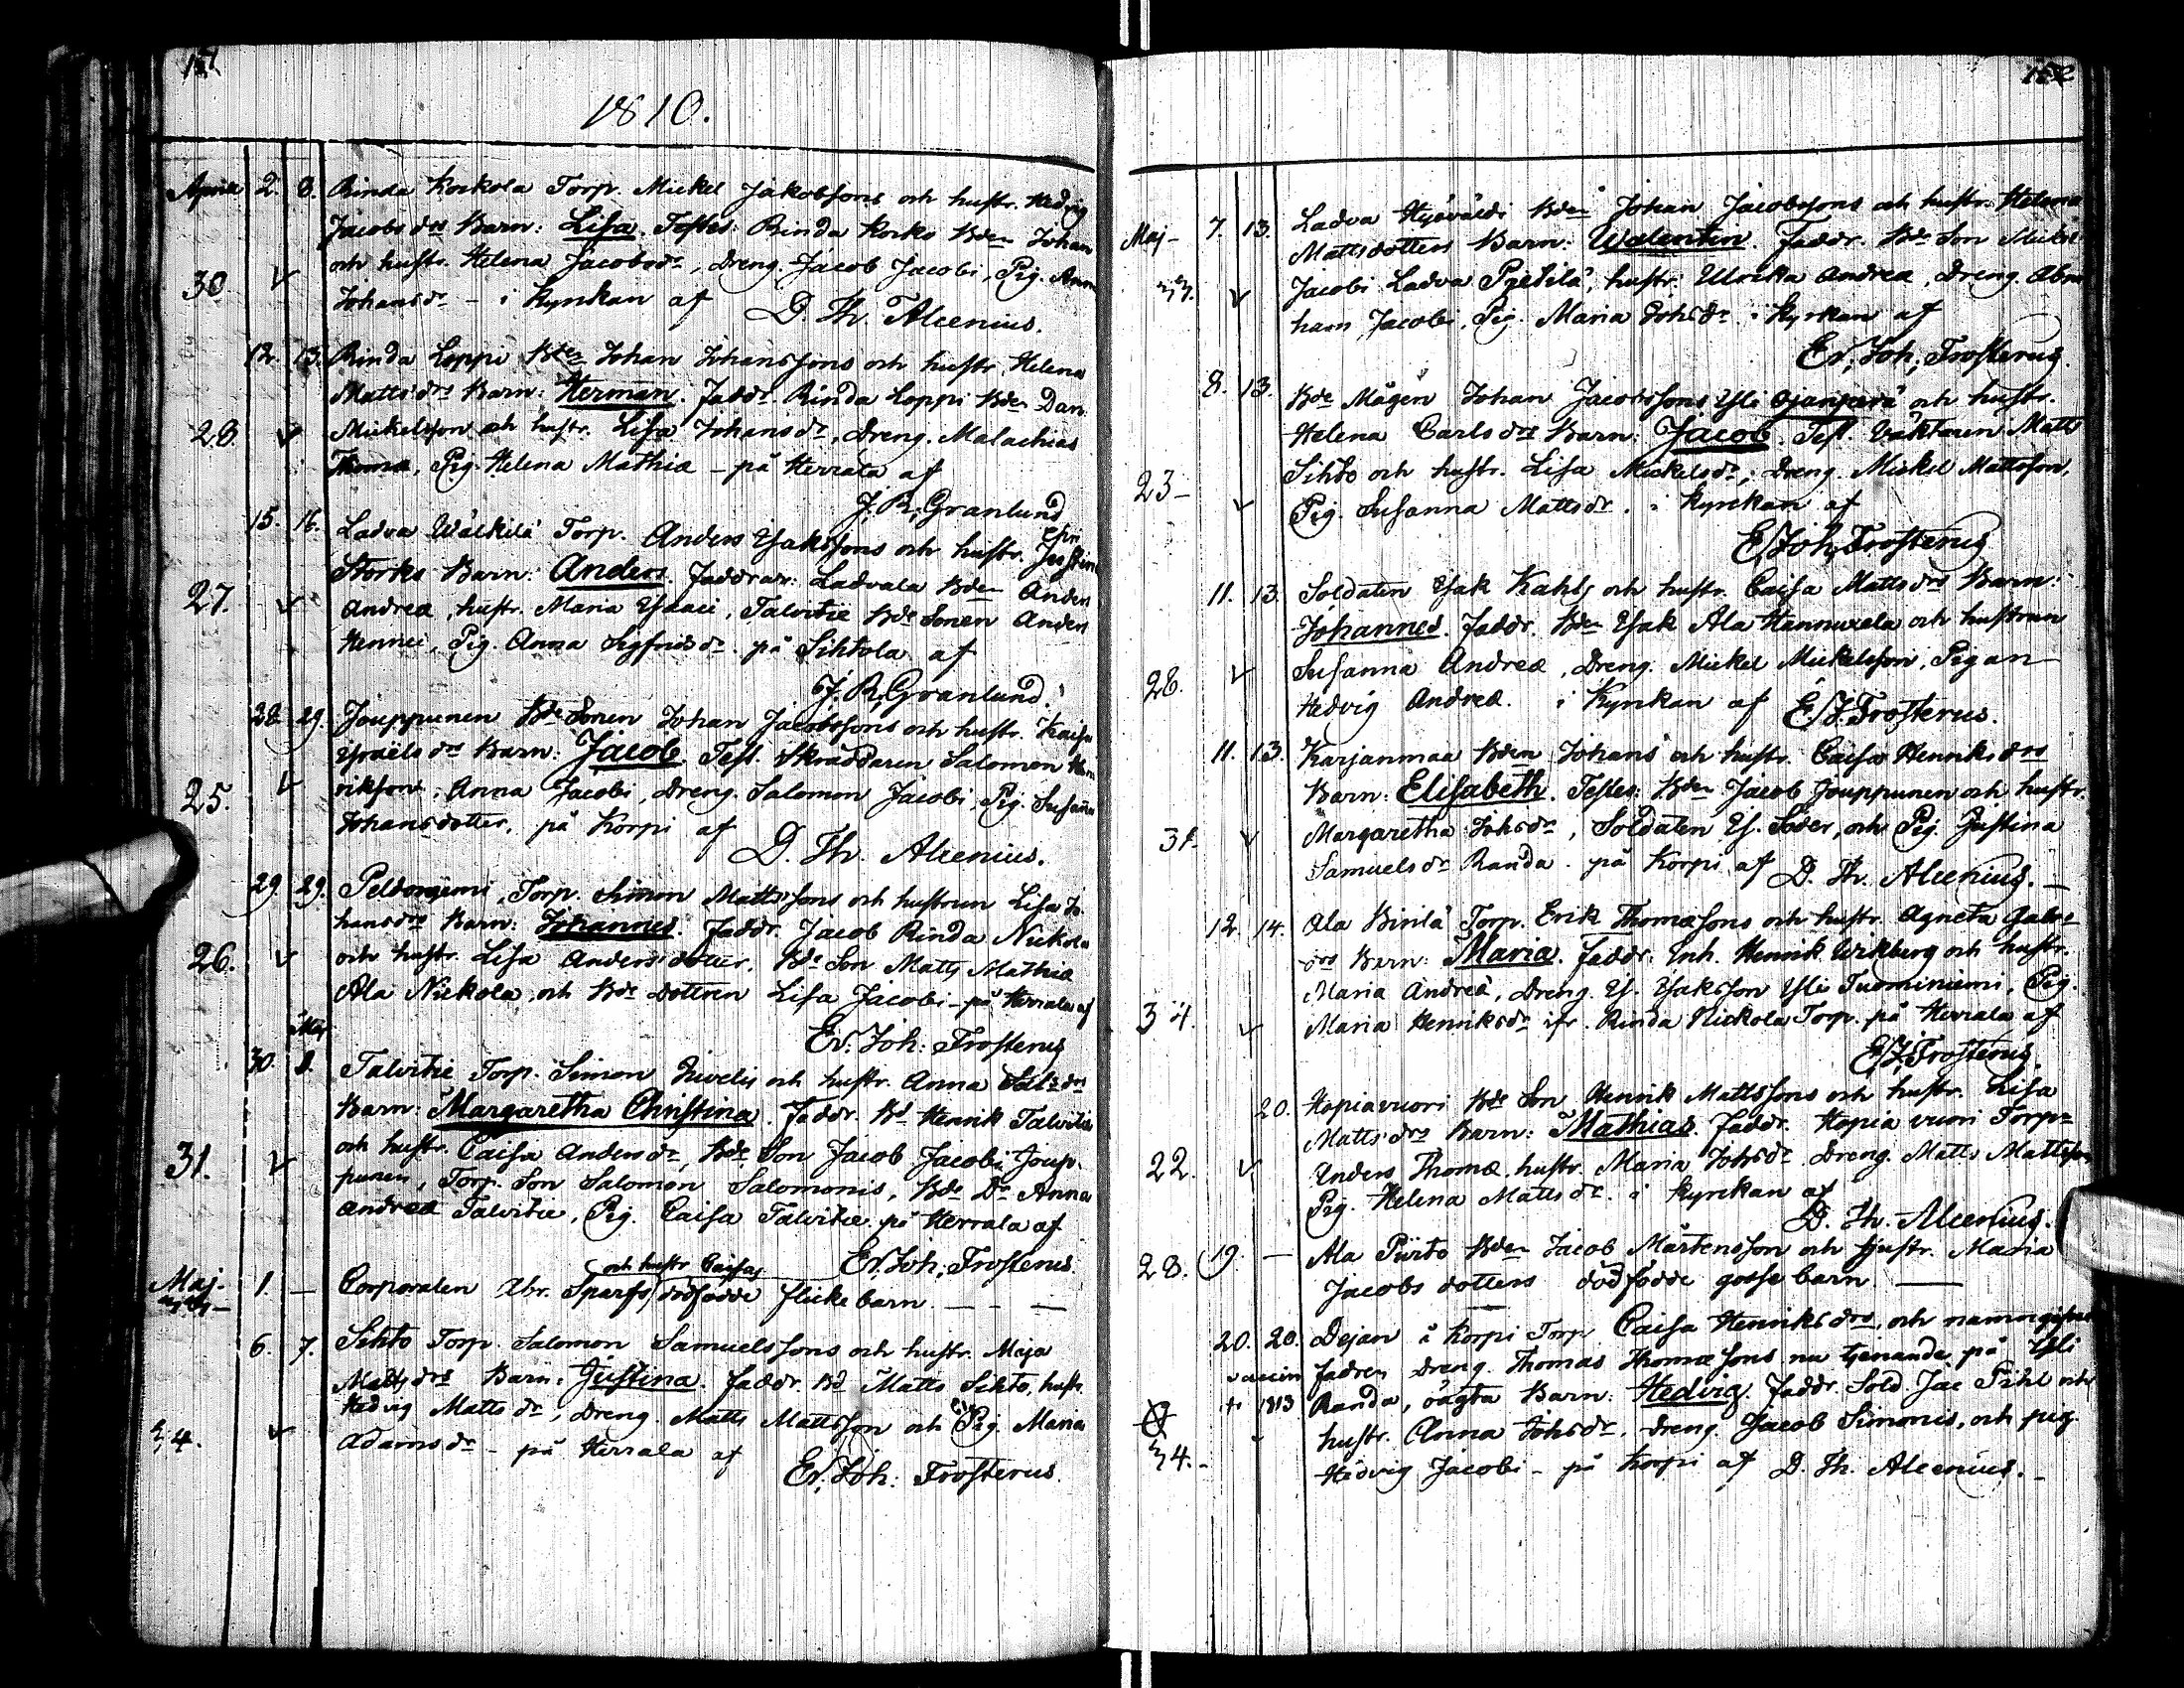 151
1810.
Aprill 2. 8. Rinda Korkola Torp. Mickel Jakobsons och hustr. Hedvig
Jacobsdrs Barn: Lisa. Testes: Rinda Korko Bden Johan
och hustr. Helena Jacobsdr, Dreng. Jacob Jacobi, Pig. Anna
30 Johansdr - i Kyrkan af D. Th. Alcenius.
12. 13. Rinda Loppi Bden Johan Johanssons och hustr. Helena
Mattsdrs Barn: Herman. Faddr. Rinda Loppi Bden Dan.
28 Mickelsson och hustr. Lisa Johansdr, Dreng. Malachias
Thomæ, Pig. Helena Mathiæ - på Herrala af
J. R. Granlund
15. 16. Ladva Wälkilä Torp. Anders Esakssons och hustr.
Storks Barn: Anders. Faddrar: Ladvala Bden Anders
27. Andreæ, hustr. Maria Esaaci, Talvitie Bde Sonen Anders
Hennei, Pig. Anna Sigfridsdr. på Sihtola af
J. R. Granlund.
28 29. Jouppunen Bde Sonen Johan Jacobssons och hustr. Kaisa
Esraelsdrs Barn: Jacob. Test. Skräddaren Salomon Hen
25. riksson, Anna Jacobi, Dreng. Salomon Jacobi, Pig. Susanna
Johansdotter, på Korpi af D. Th. Alcenius.
29. 29. Peldoniemi, Torp. Simon Mattssons och hustrun Lisa Jo
hansdrs Barn: Johannes. Faddr. Jacob Rinda Nickola
26. och hustr. Lisa Andersdotter, Bde Son Matts Mathiæ
Ala Nickola, och Bde Dottren Lisa Jacobi - på Herrala af
Maj Er. Joh: Frosterus
30. 1. Talvitie Torp. Simon och hustr. Anna
Barn: Margaretha Christina. Faddr. Bd Henrik Talvitie
31. och hustr. Caisa Andersdr, Bde Son Jacob Jacobi Joup-
punen, Torp. Son Salomon Salomonis, Bde Dr Anna
Andreæ Talvitie, Pig. Caisa Talvitie på Herrala af
Er. Joh. Frosterus.
och hustr Caisas
Maj. 1. - Corporalen Abr. Sparfs dödfödde flicke barn. - - -
6. 7. Sihto Torp. Salomon Samuelssons och hustr. Maja
Mattsdrs Barn: Justina. Faddr. Bd Matts Sihto, hustr.
Hedvig Mattsdr, Dreng. Matts Mattsson och Pig. Maria
34. Adamsdr - på Herrala af Er. Joh: Frosterus.
152
Maj - 7. 13. Ladva Hyövälti Bden Johan Jacobssons och hustr. Helena
Mattsdotters Barn: Walentin. Faddr. Bde Son Mickel
33. Jacobi Ladva Pietilä, hustr: Ulrika Andreæ, Dreng. Abra
ham Jacobi, Pig. Maria Johsdr. i Kyrkan af
Er. Joh. Frosterus
8. 13. Bde Mågen Johan Jacobssons Yli Ojanperä och hustr.
Helena Carlsdrs Barn: Jacob. Test. Väktaren Matts
23 - Sihto och hustr. Lisa Mickelsdr, Dreng. Mickel Mattsson,
Pig. Susanna Mattsdr. i Kyrckan af
E. Joh. Frosterus
11. 13. Soldaten Esak Kahls och hustr. Caisa Mattsdrs Barn:
Johannes. Faddr. Bden Esak Ala Hannuxela och hustrun
28. Susanna Andreæ, Dreng. Mickel Mickelsson, Pigan
Hedvig Andreæ. i Kyrckan af E. J. Frosterus.
11. 13. Karjanmaa Bden Johans och hustr. Caisas Henriksdrs
Barn: Elisabeth. Testes: Bden Jacob Jouppunen och hustr.
31. Margaretha Johsdr, Soldaten Es. Söder, och Pig. Justina
Samuelsdr Randa. på Korpi, af D. Th. Alcenius. -
12. 14. Ala Pirilä Torp. Erik Thomæsons och hustr. Agneta Gabr-
drs Barn: Maria. Faddr: Inh. Henrik Wikberg och hustr.
Maria Andreæ, Dreng. Es. Esaksson Yli Tuominiemi, Pig.
34. Maria Henriksdr ifr. Rinda Nickola Torp. på Herrala af
E. J. Frosterus.
20. Hopiavuori Bde Son Henrik Mattssons och hustr. Lisa
Mattsdrs Barn: Mathias. Faddr. Hopiavuori Torp-
22. Anders Thomæ, hustr. Maria Johsdr. Dreng. Matts Mattsson
Pig. Helena Mattsdr. i Kyrckan af
D. Th. Alcenius.
28. 19. - Ala Pürto Bden Jacob Mårtensson och Hustr. Maria
Jacobs dotters dödfödde gosse barn. -
20. 20. Dejan å Korpi Torp Caisa Henriksdrs, och namngifne
vaccin fadren Dreng. Thomas Thomæsons nu tjenande på Yli
† 1813 Randa, oägta Barn: Hedvig. Faddr. Sold. Jac Pihl och
hustr. Anna Johsdr, Dreng. Jacob Simonis, och pig.
34. - Hedvig Jacobi - på Korpi af D. Th. Alcenius. -